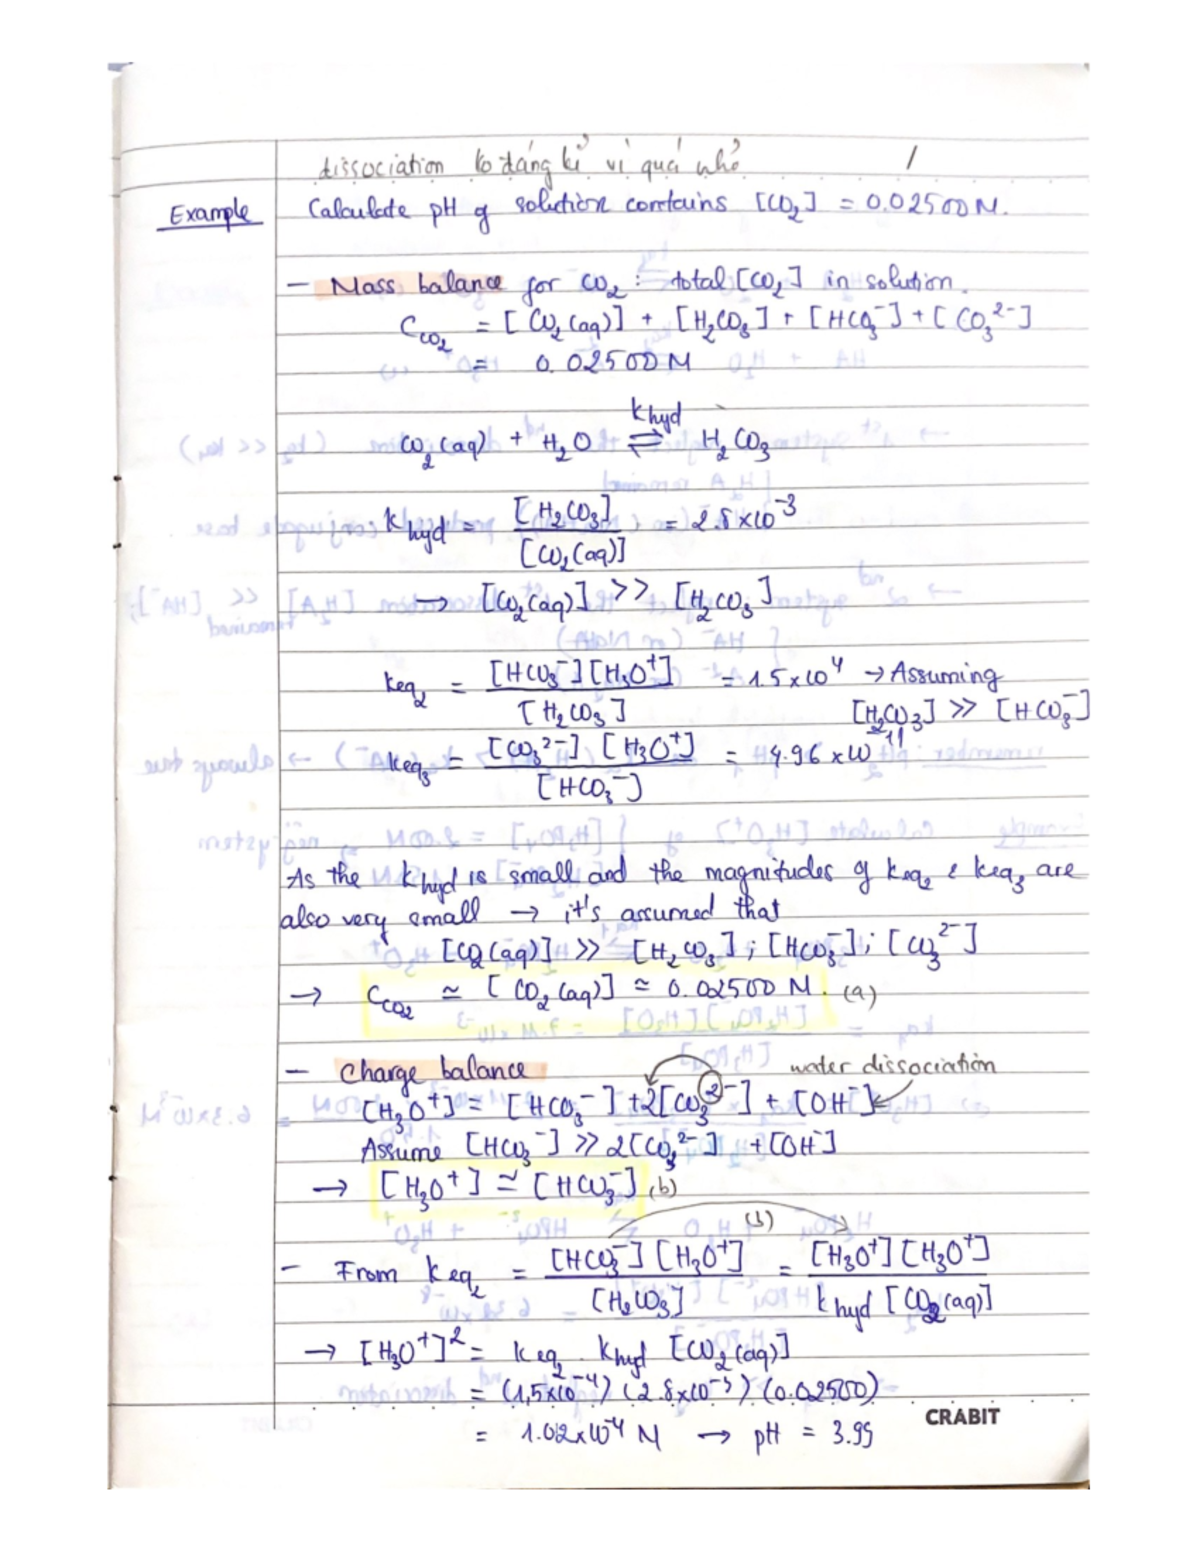 dissociation ko đáng kể vì quá nhỏ /
Example Calculate pH of solution contains [CO₂] = 0.02500 M.
- Mass balance for CO₂ : total [CO₂] in solution.
C_CO₂ = [CO₂(aq)] + [H₂CO₃] + [HCO₃⁻] + [CO₃²⁻]
= 0.02500 M
CO₂(aq) + H₂O ⇌ H₂CO₃
khyd
khyd = [H₂CO₃] / [CO₂(aq)] = 2.8×10⁻³
→ [CO₂(aq)] >> [H₂CO₃]
keq₂ = [HCO₃⁻][H₃O⁺] / [H₂CO₃] = 1.5×10⁴ → Assuming
[H₂CO₃] >> [HCO₃⁻]
keq₃ = [CO₃²⁻][H₃O⁺] / [HCO₃⁻] = 4.96×10⁻¹¹
As the khyd is small and the magnitudes of keq₂ & keq₃ are
also very small → it's assumed that
[CO₂(aq)] >> [H₂CO₃] ; [HCO₃⁻] ; [CO₃²⁻]
→ C_CO₂ ≃ [CO₂(aq)] ≃ 0.02500 M. (a)
- Charge balance water dissociation
[H₃O⁺] = [HCO₃⁻] + 2[CO₃²⁻] + [OH⁻]
Assume [HCO₃⁻] >> 2[CO₃²⁻] + [OH⁻]
→ [H₃O⁺] ≃ [HCO₃⁻] (b)
(b)
- From keq₂ = [HCO₃⁻][H₃O⁺] / [H₂CO₃] = [H₃O⁺][H₃O⁺] / khyd [CO₂(aq)]
→ [H₃O⁺]² = keq₂ . khyd [CO₂(aq)]
= (1,5×10⁻⁴) (2.8×10⁻³) (0.02500)
CRABIT
= 1.012×10⁻⁴ M → pH = 3.99